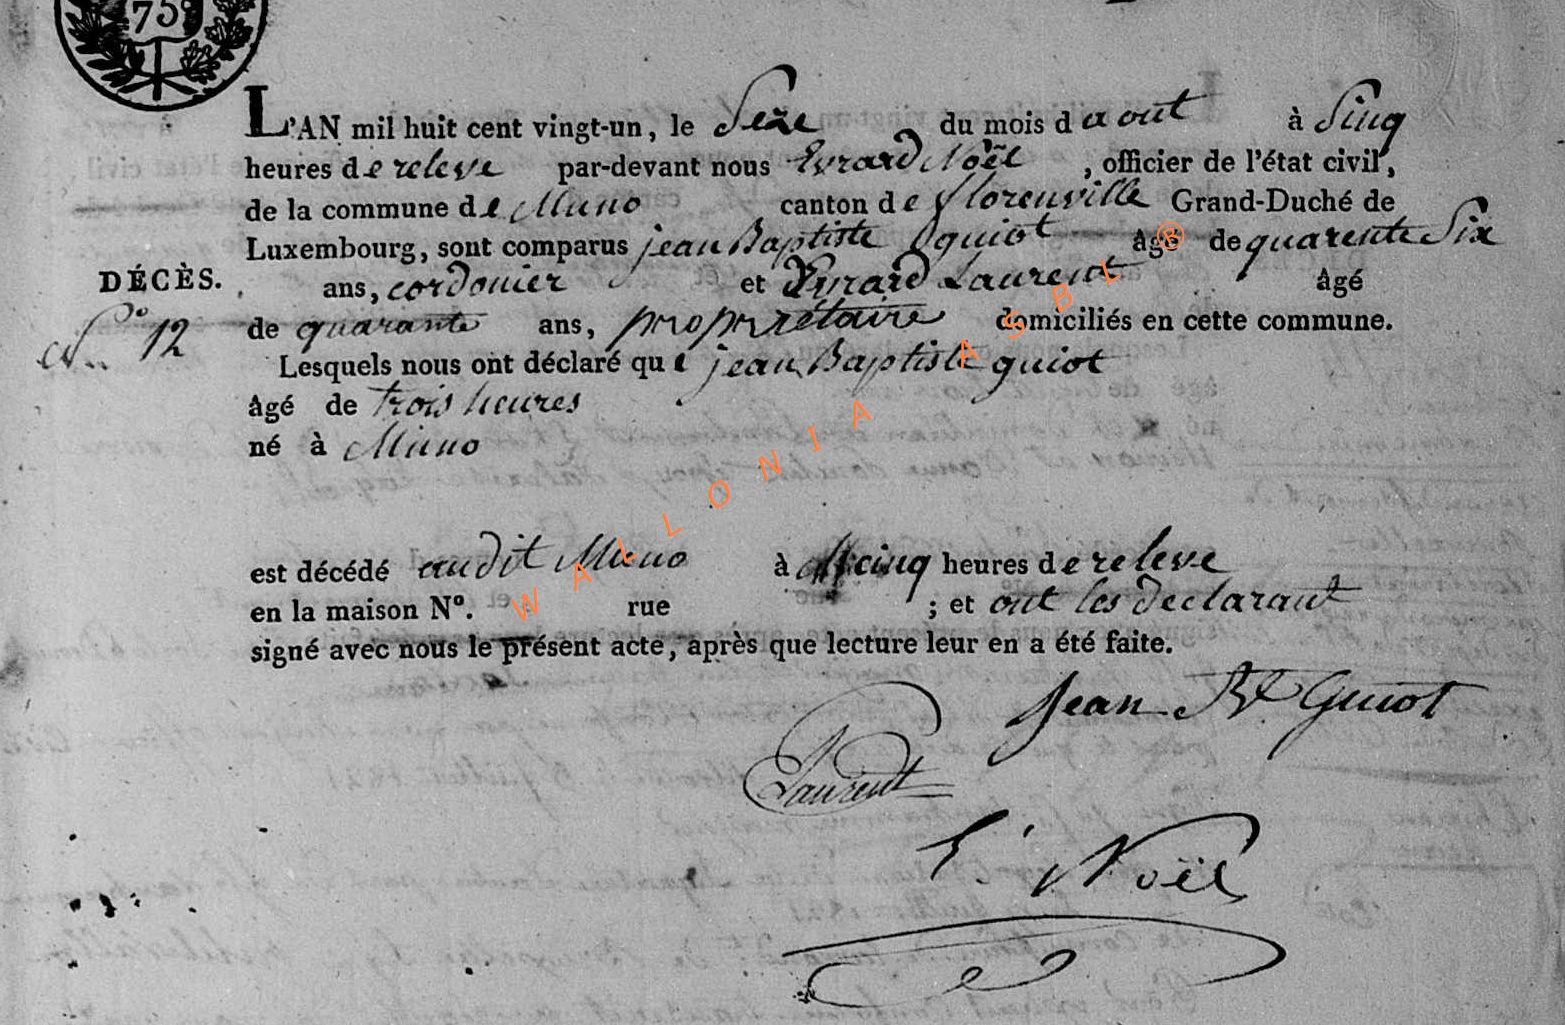 75
L'AN mil huit cent vingt-un, le Seze du mois d aout à Sinq
heures de releve par-devant nous Evrard Noël , officier de l'état civil,
de la commune de Muno canton de florenville Grand-Duché de
Luxembourg, sont comparus jean Baptiste guiot âgé de quarente Six
DÉCÈS. ans, cordonier et Evrard Laurent âgé
N.° 12 de quarante ans, proprietaire domiciliés en cette commune.
Lesquels nous ont déclaré que jean Baptiste guiot
âgé de trois heures
né à Muno
est décédé audit Muno à cinq heures de releve
en la maison N°. rue ; et ont les declarant
signé avec nous le présent acte, après que lecture leur en a été faite.
Jean Bte Guiot
Laurent
E. Noël
WALLONIA ASBL ®